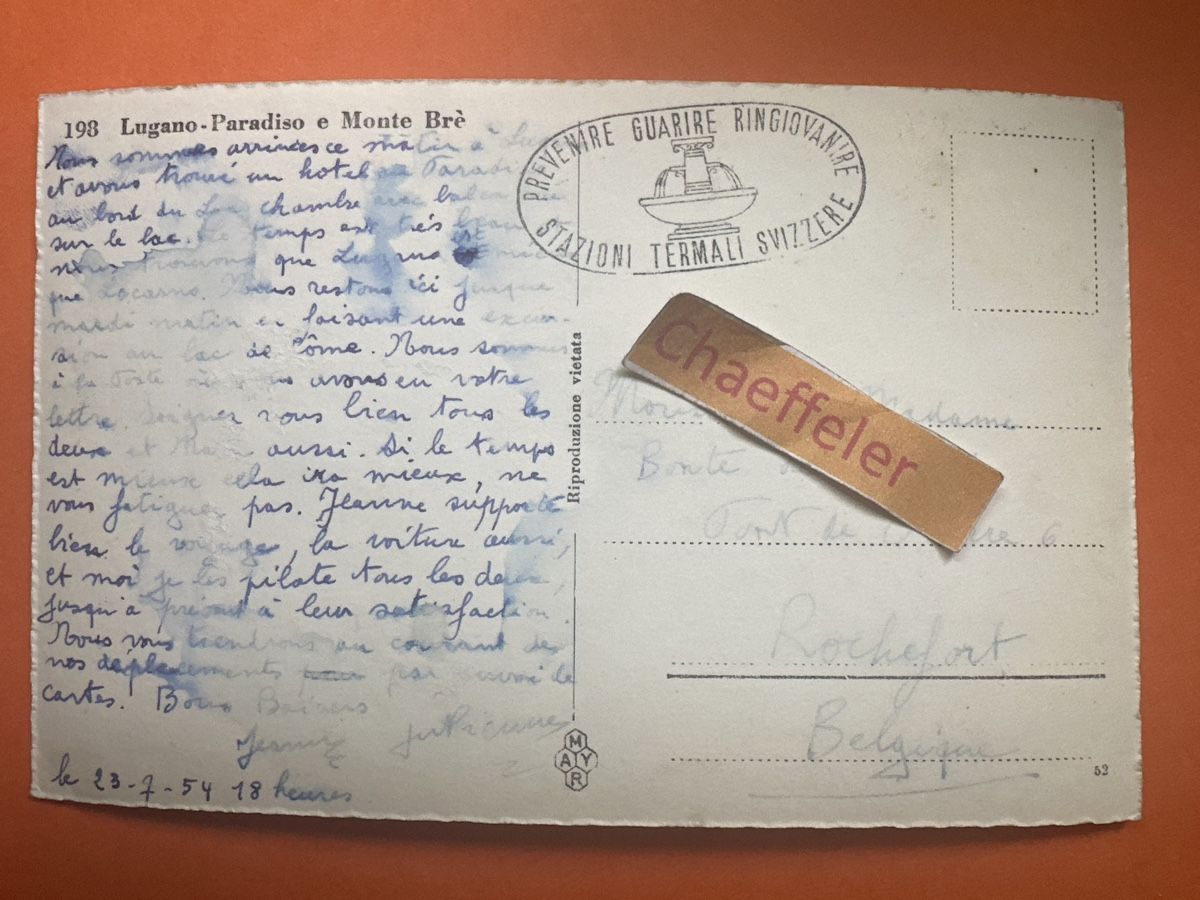 198 Lugano-Paradiso e Monte Brè
Nous sommes arrivés ce matin à
et avons trouvé un hotel au Paradi
au bord du Lac chambre avec balcon
sur le lac. Le temps est très beau
nous trouvons que Lugano est
que Locarno. Nous restons ici jusque
mardi matin en faisant une excur-
sion au lac de Côme. Nous sommes
à la Poste où nous avons eu votre
lettre, soignez vous bien tous les
deux et aussi. Si le temps
est mieux cela ira mieux, ne
vous fatiguer pas. Jeanne supporte
bien le voyage, la voiture aussi,
et moi je les pilote tous les deux,
jusqu'à présent à leur satisfaction.
Nous vous tiendrons au courant de
nos déplacements par envoi de
cartes. Bons Baisers
le 23-7-54 18 heures
PREVENIRE GUARIRE RINGIOVANIRE
STAZIONI TERMALI SVIZZERE
Riproduzione vietata
MAYR
Chaeffeler
Madame
Pont de 6
Rochefort
Belgique
52